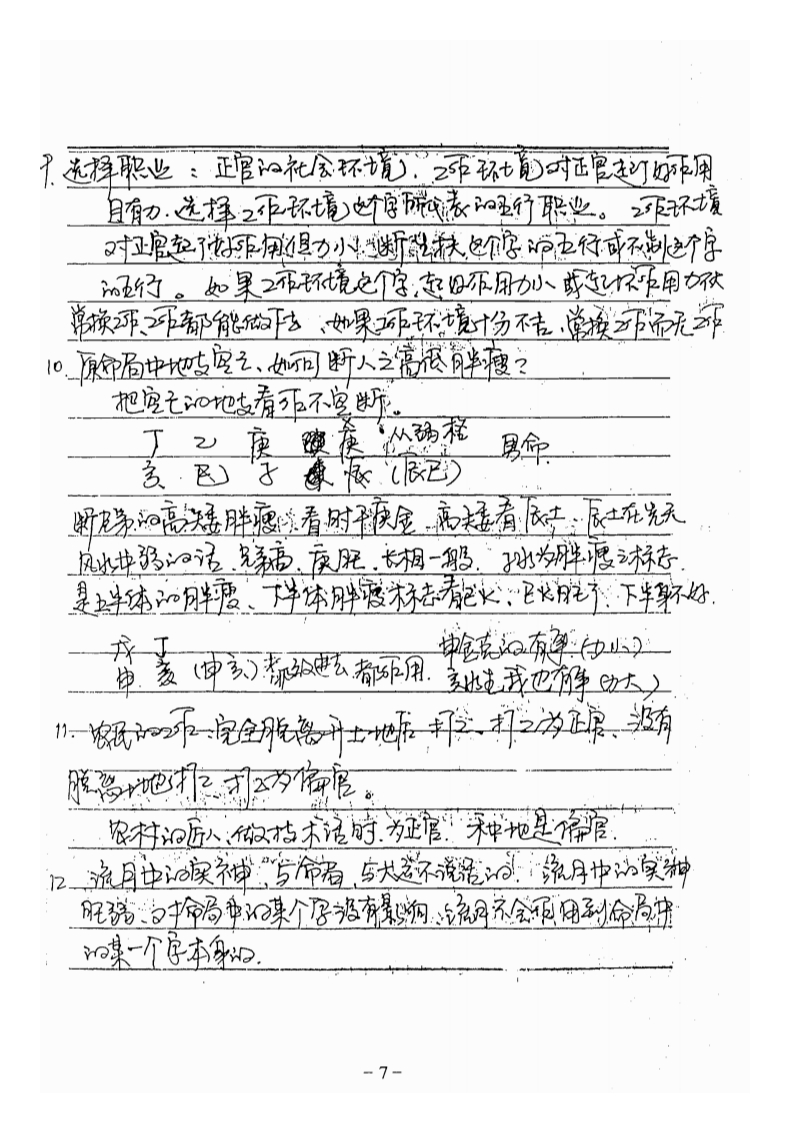 9. 选择职业：正官的社会环境，工作环境对正官起了好作用
且有力，选择工作环境这个字所代表的五行职业。工作环境
对正官起了好作用但力小，断选扶这个字的五行或不制这个字
的五行。如果工作环境这个字，起旧作用力小或起坏作用力大
常换工作，工作都能做下去，如果工作环境十分不吉，常换工作而无工作
10. 原命局中地支空亡，如何断人之高低胖瘦？
把空亡的地支看作不空断。
丁 乙 庚 庚 从弱格 男命
亥 巳 子 辰 (辰巳)
断兄弟的高矮胖瘦，看时干庚金，高矮看辰土，辰土在先天
风水中弱的话，兄弟高，庚旺，长相一般，子水为胖瘦之标志，
是上半体的胖瘦，下半体胖瘦标志看巳火，巳火旺了，下半身不好.
戊 丁 申金克的有事(力小)
申 亥 (申亥)都放进去，都作用. 亥水生我也有事(力大)
11. 农民的工作：完全脱离开土地后打工，打工为正官，没有
脱离土地打工，打工为偏官。
农村的匠人，做技术活时，为正官，种地是偏官.
12 流月中的实神，与命局，与大运不说话的. 流月中的实神
旺弱，对命局中的某个字没有影响，流月不会作用到命局中
的某一个字本身的.
-7-